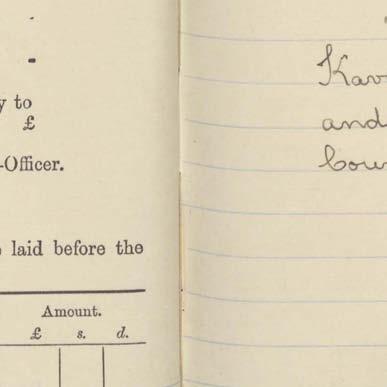 y to
£
-Officer.
laid before the
Amount.
£ s. d.
Kav
and
Cour